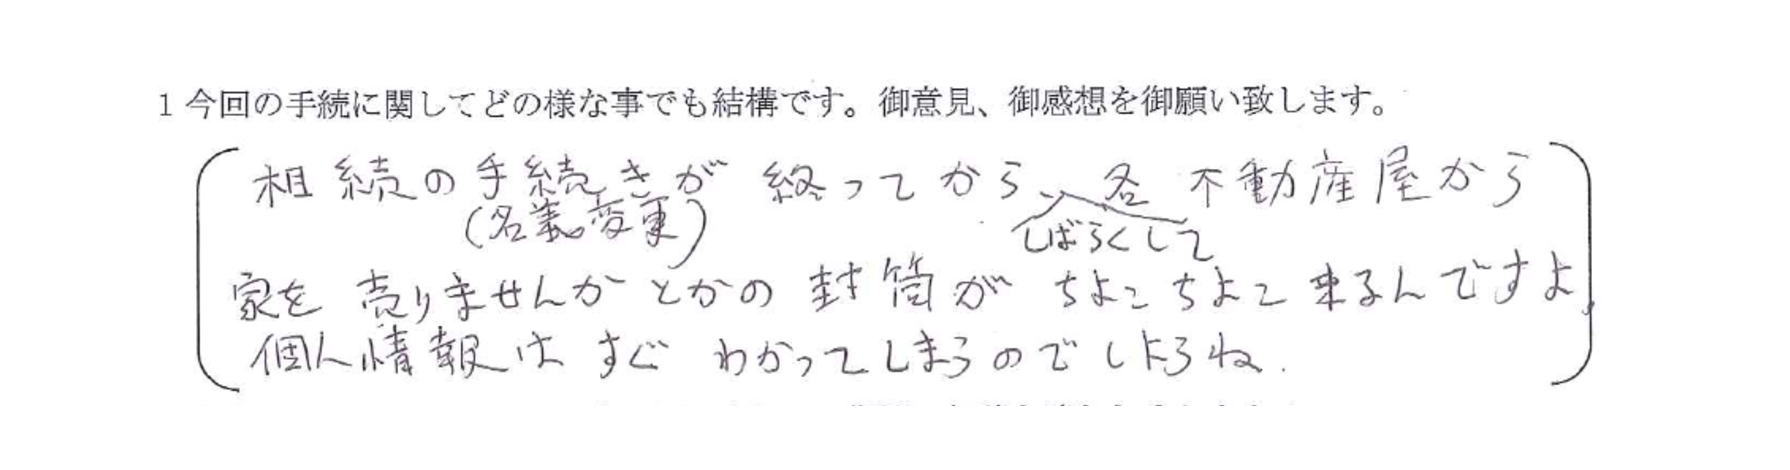 1 今回の手続に関してどの様な事でも結構です。御意見、御感想を御願い致します。
相続の手続きが 終ってから、各 不動産屋から
(名義変更) しばらくして
家を 売りませんかとかの 封筒が ちょこちょこ 来るんですよ、
個人情報は すぐ わかってしまうのでしょうね.